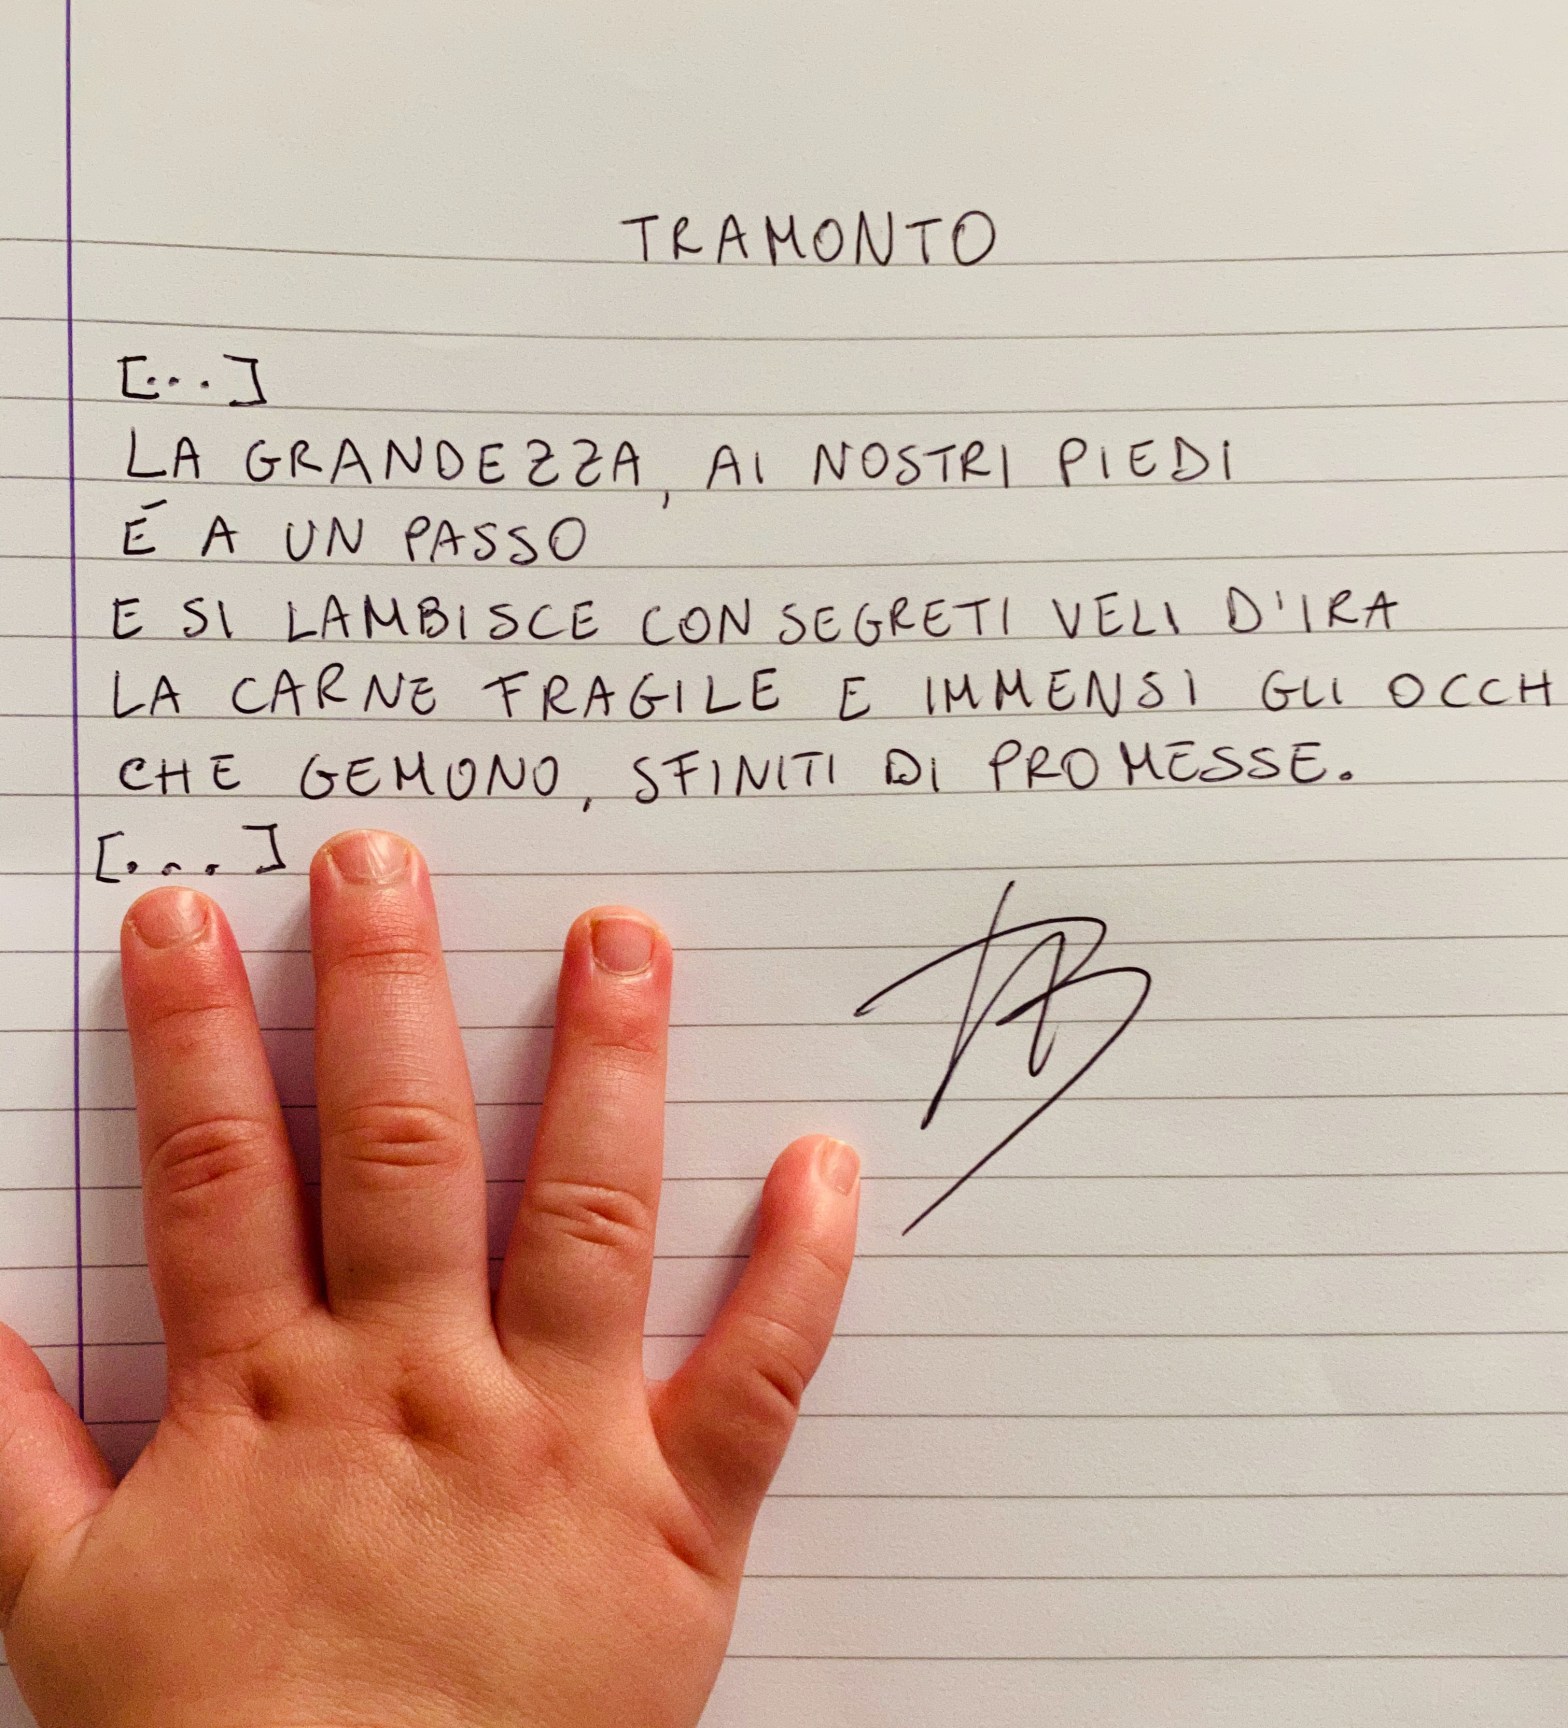 TRAMONTO
[...]
LA GRANDEZZA, AI NOSTRI PIEDI
É A UN PASSO
E SI LAMBISCE CON SEGRETI VELI D'IRA
LA CARNE FRAGILE E IMMENSI GLI OCCH
CHE GEMONO, SFINITI DI PROMESSE.
[...]